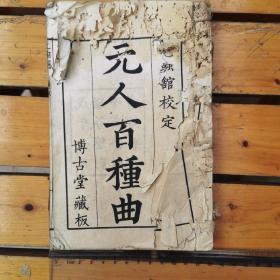 館校定
元人百種曲
博古堂藏板